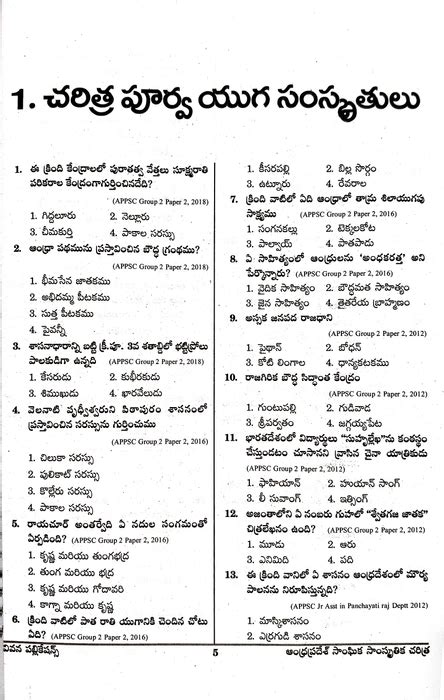 1. చరిత్ర పూర్వ యుగ సంస్కృతులు
1. ఈ క్రింది కేంద్రాలలో పురాతత్వ వేత్తలు సూక్ష్మరాతి
పరికరాల కేంద్రంగాగుర్తించినదేది?
(APPSC Group 2 Paper 2, 2018)
1. గిద్దలూరు 2. నెల్లూరు
3. చీమకుర్తి 4. పాకాల సరస్సు
2. ఆంధ్రా పథమును ప్రస్తావించిన బౌద్ధ గ్రంథము?
(APPSC Group 2 Paper 2, 2018)
1. భీమసేన జాతకము
2. అభిదమ్మ పీటకము
3. సుత్త పీటకము
4. పైవన్నీ
3. శాసనాధారాన్ని బట్టి క్రీ.పూ. 3వ శతాబ్దిలో భట్టిప్రోలు
పాలకుడిగా ఉన్నది (APPSC Group 2 Paper 2, 2018)
1. కేసరుడు 2. కుభీరకుడు
3. శిముఖుడు 4. ఖారవేలుడు
4. వెలనాటి పృధ్వీశ్వరుని పిఠాపురం శాసనంలో
ప్రస్తావించిన సరస్సును గుర్తించుము
(APPSC Group 2 Paper 2, 2016)
1. చిలుకా సరస్సు
2. పులికాట్ సరస్సు
3. కొల్లేరు సరస్సు
4. పాకాల సరస్సు
5. రాయచూర్ అంతర్వేది ఏ నదుల సంగమంతో
ఏర్పడింది? (APPSC Group 2 Paper 2, 2016)
1. కృష్ణ మరియు తుంగభద్ర
2. తుంగ మరియు భద్ర
3. కృష్ణ మరియు గోదావరి
4. కాగ్నా మరియు కృష్ణ
6. క్రింది వాటిలో పాత రాతి యుగానికి చెందిన చోటు
ఏది? (APPSC Group 2 Paper 2, 2016)
1. కీసరపల్లి 2. బిల్ల సొర్గం
3. ఉట్నూరు 4. రేవరాల
7. క్రింది వాటిలో ఏది ఆంధ్రాలో తామ్ర శిలాయుగపు
సాక్ష్యము (APPSC Group 2 Paper 2, 2016)
1. సంగనకల్లు 2. టెక్కలకోట
3. పాల్వాయ్ 4. పాతపాడు
8. ఏ సాహిత్యంలో ఆంధ్రులను 'అంధకరత్త' అని
పేర్కొన్నారు? (APPSC Group 2 Paper 2, 2016)
1. వైదిక సాహిత్యం 2. బౌద్ధమత సాహిత్యం
3. జైన సాహిత్యం 4. తైతరేయ బ్రాహ్మణం
9. అస్సక జనపద రాజధాని
(APPSC Group 2 Paper 2, 2012)
1. పైథాన్ 2. బోధన్
3. కోటి లింగాల 4. ధాన్యకటకము
10. రాజగిరిక బౌద్ధ సిద్ధాంత కేంద్రం
(APPSC Group 2 Paper 2, 2012)
1. గుంటుపల్లి 2. గుడివాడ
3. శ్రీపర్వతం 4. జగ్గయ్యపేట
11. భారతదేశంలో విద్యార్థులు "సుహృల్లేఖ"ను కంఠస్థం
చేస్తుండటం చూసానని వ్రాసిన చైనా యాత్రికుడు
(APPSC Group 2 Paper 2, 2012)
1. ఫాహియాన్ 2. హుయాన్ సాంగ్
3. లీ సువాంగ్ 4. ఇత్సింగ్
12. అజంతాలోని ఏ నంబరు గుహలో "శ్వేతగజ జాతక"
చిత్రలేఖనం ఉంది? (APPSC Group 2 Paper 2, 2012)
1. మూడు 2. ఆరు
3. ఎనిమిది 4. పది
13. ఈ క్రింది వానిలో ఏ శాసనం ఆంధ్రదేశంలో మౌర్య
పాలనను నిరూపిస్తున్నది?
(APPSC Jr Asst in Panchayati raj Deptt 2012)
1. మాస్కిశాసనం
2. ఎర్రగుడి శాసనం
వివన పబ్లికేషన్స్ 5 ఆంధ్రప్రదేశ్ సాంఘిక సాంస్కృతిక చరిత్ర